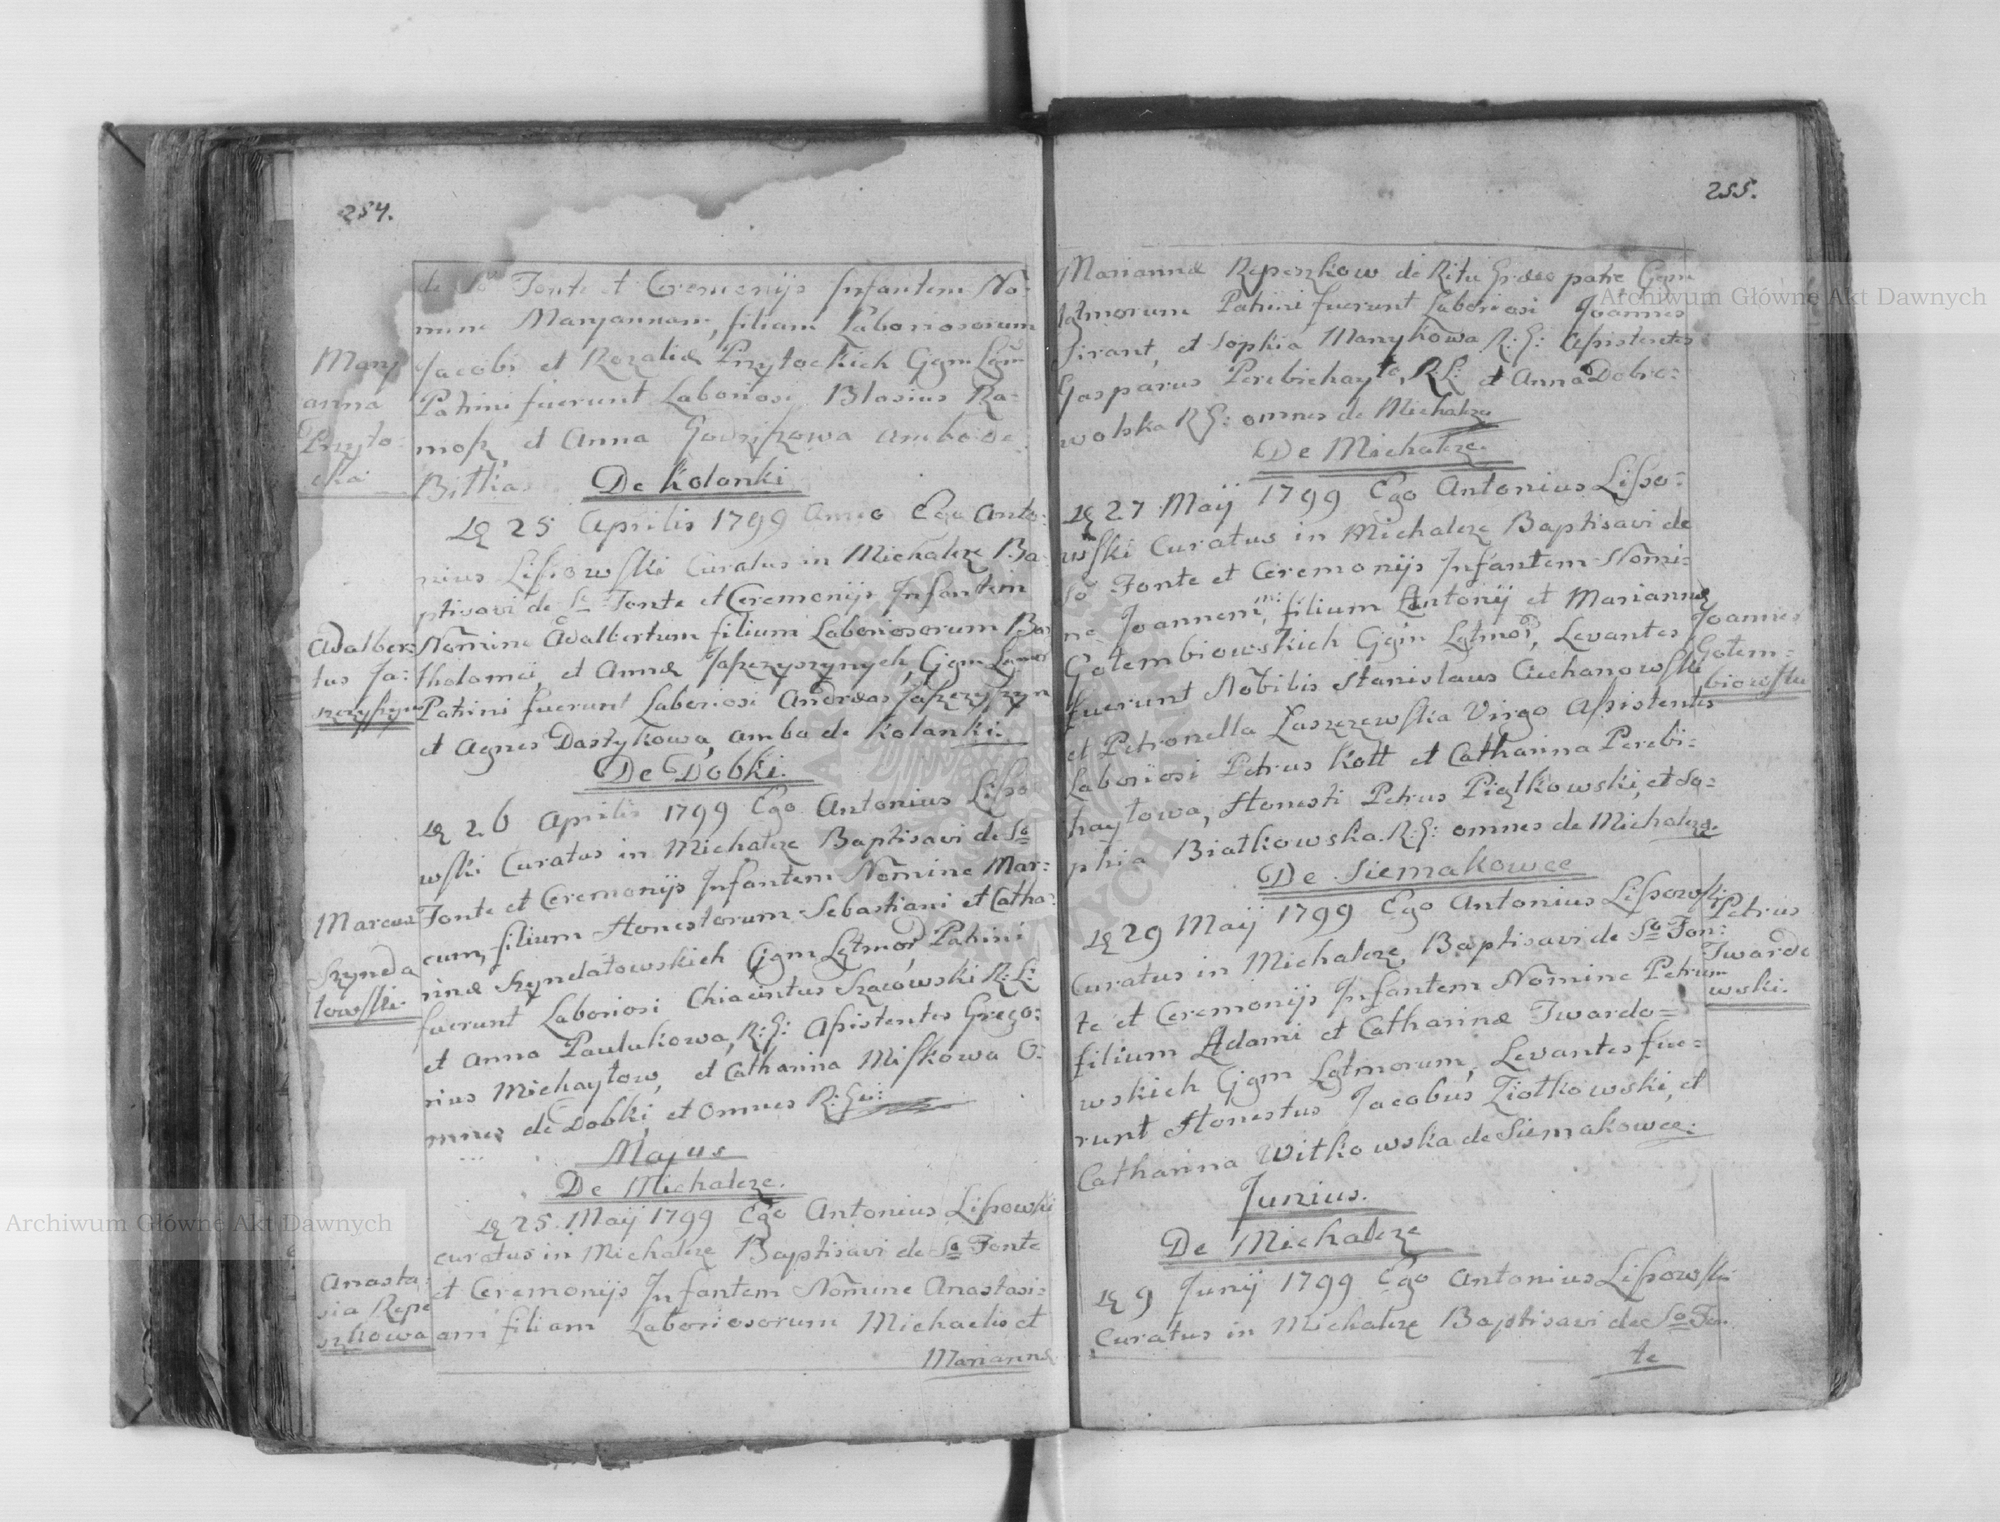 254.
de So Fonte et Ceremonijs Infantem No-
mine Maryannam, filiam Laboriosorum
Jacobi et Rozaliæ Przytockich Cjgm Lgm
Patrini fuerunt Laboriosi Blasius Ra-
mosz, et Anna ambo de
Bitki
Mary
anna
Przyto-
cka
De Kolanki
25 Aprilis 1799 Anno Ego Anto-
nius Lissowski Curatus in Michalcze Ba-
ptisavi de So Fonte et Ceremonijs Infantem
Nomine Adalbertum filium Laboriosorum Bar
tholomei, et Annæ Jaszczyszynych, Cjgm Lgmor
Patrini fuerunt Laboriosi Andreas Jaszczyszyn
et Agnes Dastykowa, ambo de Kolanki.
Adalber-
tus Ja-
szczyszyn
De Dobki.
26 Aprilis 1799 Ego Antonius Lisso
wski Curatus in Michalcze Baptisavi de So
Fonte et Ceremonijs Infantem Nomine Mar-
cum, filium Honestorum Sebastiani et Catha-
rinæ Szyndałowskich Cjgm Lgtmor, Patrini
fuerunt Laboriosi Chiacintus Szacowski R: L:
et Anna Paulukowa, R: G: Assistentes Grego-
rius Michayłow, et Catharina Miskowa O-
mnes de Dobki, et omnes R: Gr:
Marcus
Szynda
lowski.
Majus
De Michalcze.
25 Maij 1799 Ego Antonius Lissowski
curatus in Michalcze Baptisavi de So Fonte
et Ceremonijs Infantem Nomine Anastasi-
am filiam Laboriosorum Michaelis et
Mariannæ
Anasta-
sia Repe
szkowa
255.
Mariannæ Repeszkow de Ritu Græco patre Cjgm
Lgtmorum Patrini fuerunt Laboriosi Joannes
Sirant, et Sophia Manykowa R: G: Assistentes
Gasparus Perebichayło, R: L: et Anna Dobro-
wolska R G: omnes de Michalcze
De Michalcze.
27 Maij 1799 Ego Antonius Lisso-
wski Curatus in Michalcze Baptisavi de
So Fonte et Ceremonijs Infantem Nomi-
ne Joannem, filium Antonij et Mariannæ
Gołembiowskich Cjgm Lgtmor, Levantes
fuerunt Nobilis Stanislaus Ciechanowski
et Petronella Zaszczewska Virgo Assistentes
Laboriosi Petrus Kott et Catharina Perebi-
hayłowa, Honesti Petrus Piątkowski, et So-
phia Białkowska. R: G: omnes de Michalcze.
Joannes
Gołem-
biowski
De Siemakowce
29 Maij 1799 Ego Antonius Lissowski
Curatus in Michalcze, Baptisavi de So Fon-
te et Ceremonijs Infantem Nomine Petrum
filium Adami et Catharinæ Twardo-
wskich Cjgm Lgtmorum, Levantes fue-
runt Honestus Jacobus Ziołkowski, et
Catharina Witkowska de Siemakowce.
Petrus
Twardo
wski.
Junius.
De Michalcze
9 Junij 1799 Ego Antonius Lissowski
Curatus in Michalcze Baptisavi de So Fon
te
Archiwum Główne Akt Dawnych
Archiwum Główne Akt Dawnych